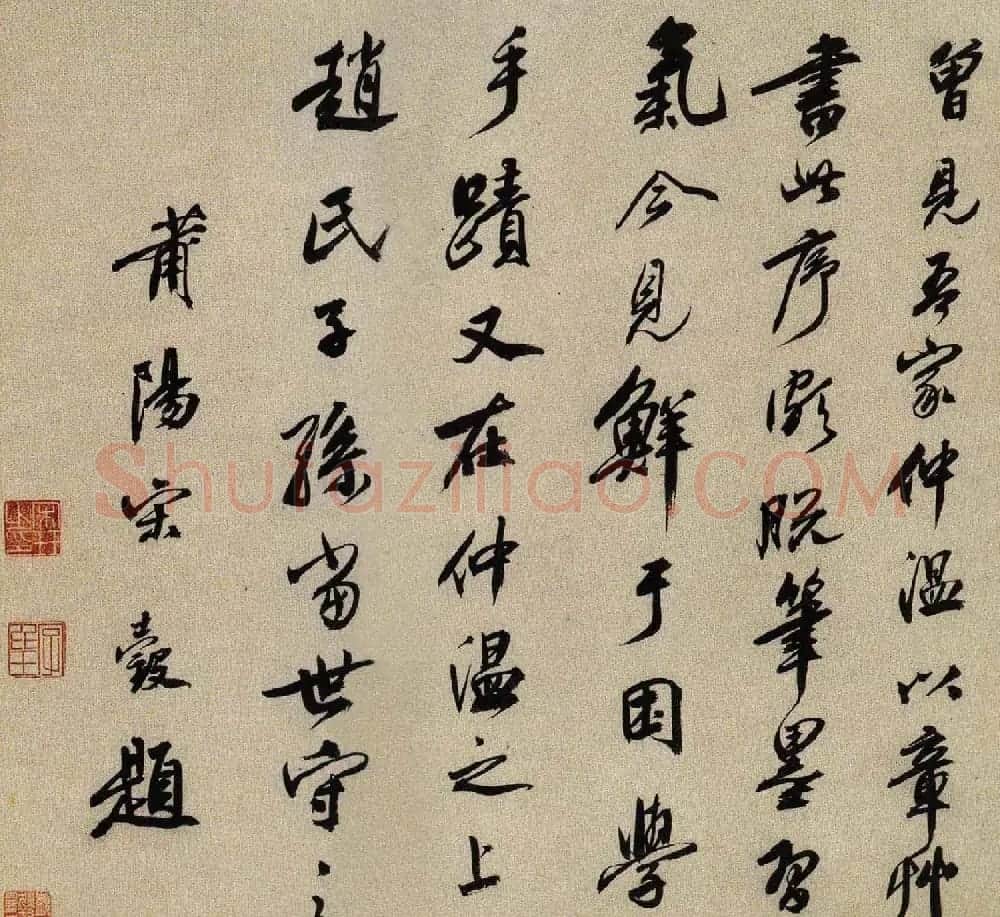 曾見吾家仲溫以章艸
書此序頗脫筆墨習
氣今見鮮于困學
手蹟又在仲溫之上
趙民子孫當世守之
莆陽宋彀題
Shufaziliao.COM